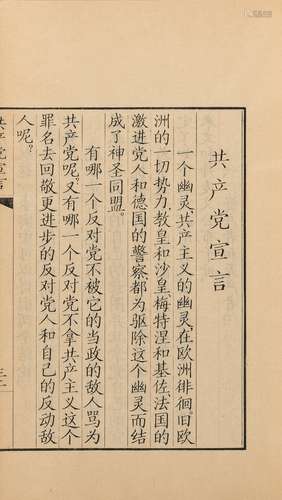 共产党宣言
一个幽灵,共产主义的幽灵,在欧洲徘徊。旧欧
洲的一切势力,教皇和沙皇、梅特涅和基佐、法国的
激进党人和德国的警察,都为驱除这个幽灵而结
成了神圣同盟。
有哪一个反对党不被它的当政的敌人骂为
共产党呢?又有哪一个反对党不拿共产主义这个
罪名去回敬更进步的反对党人和自己的反动敌
人呢?
共产党宣言